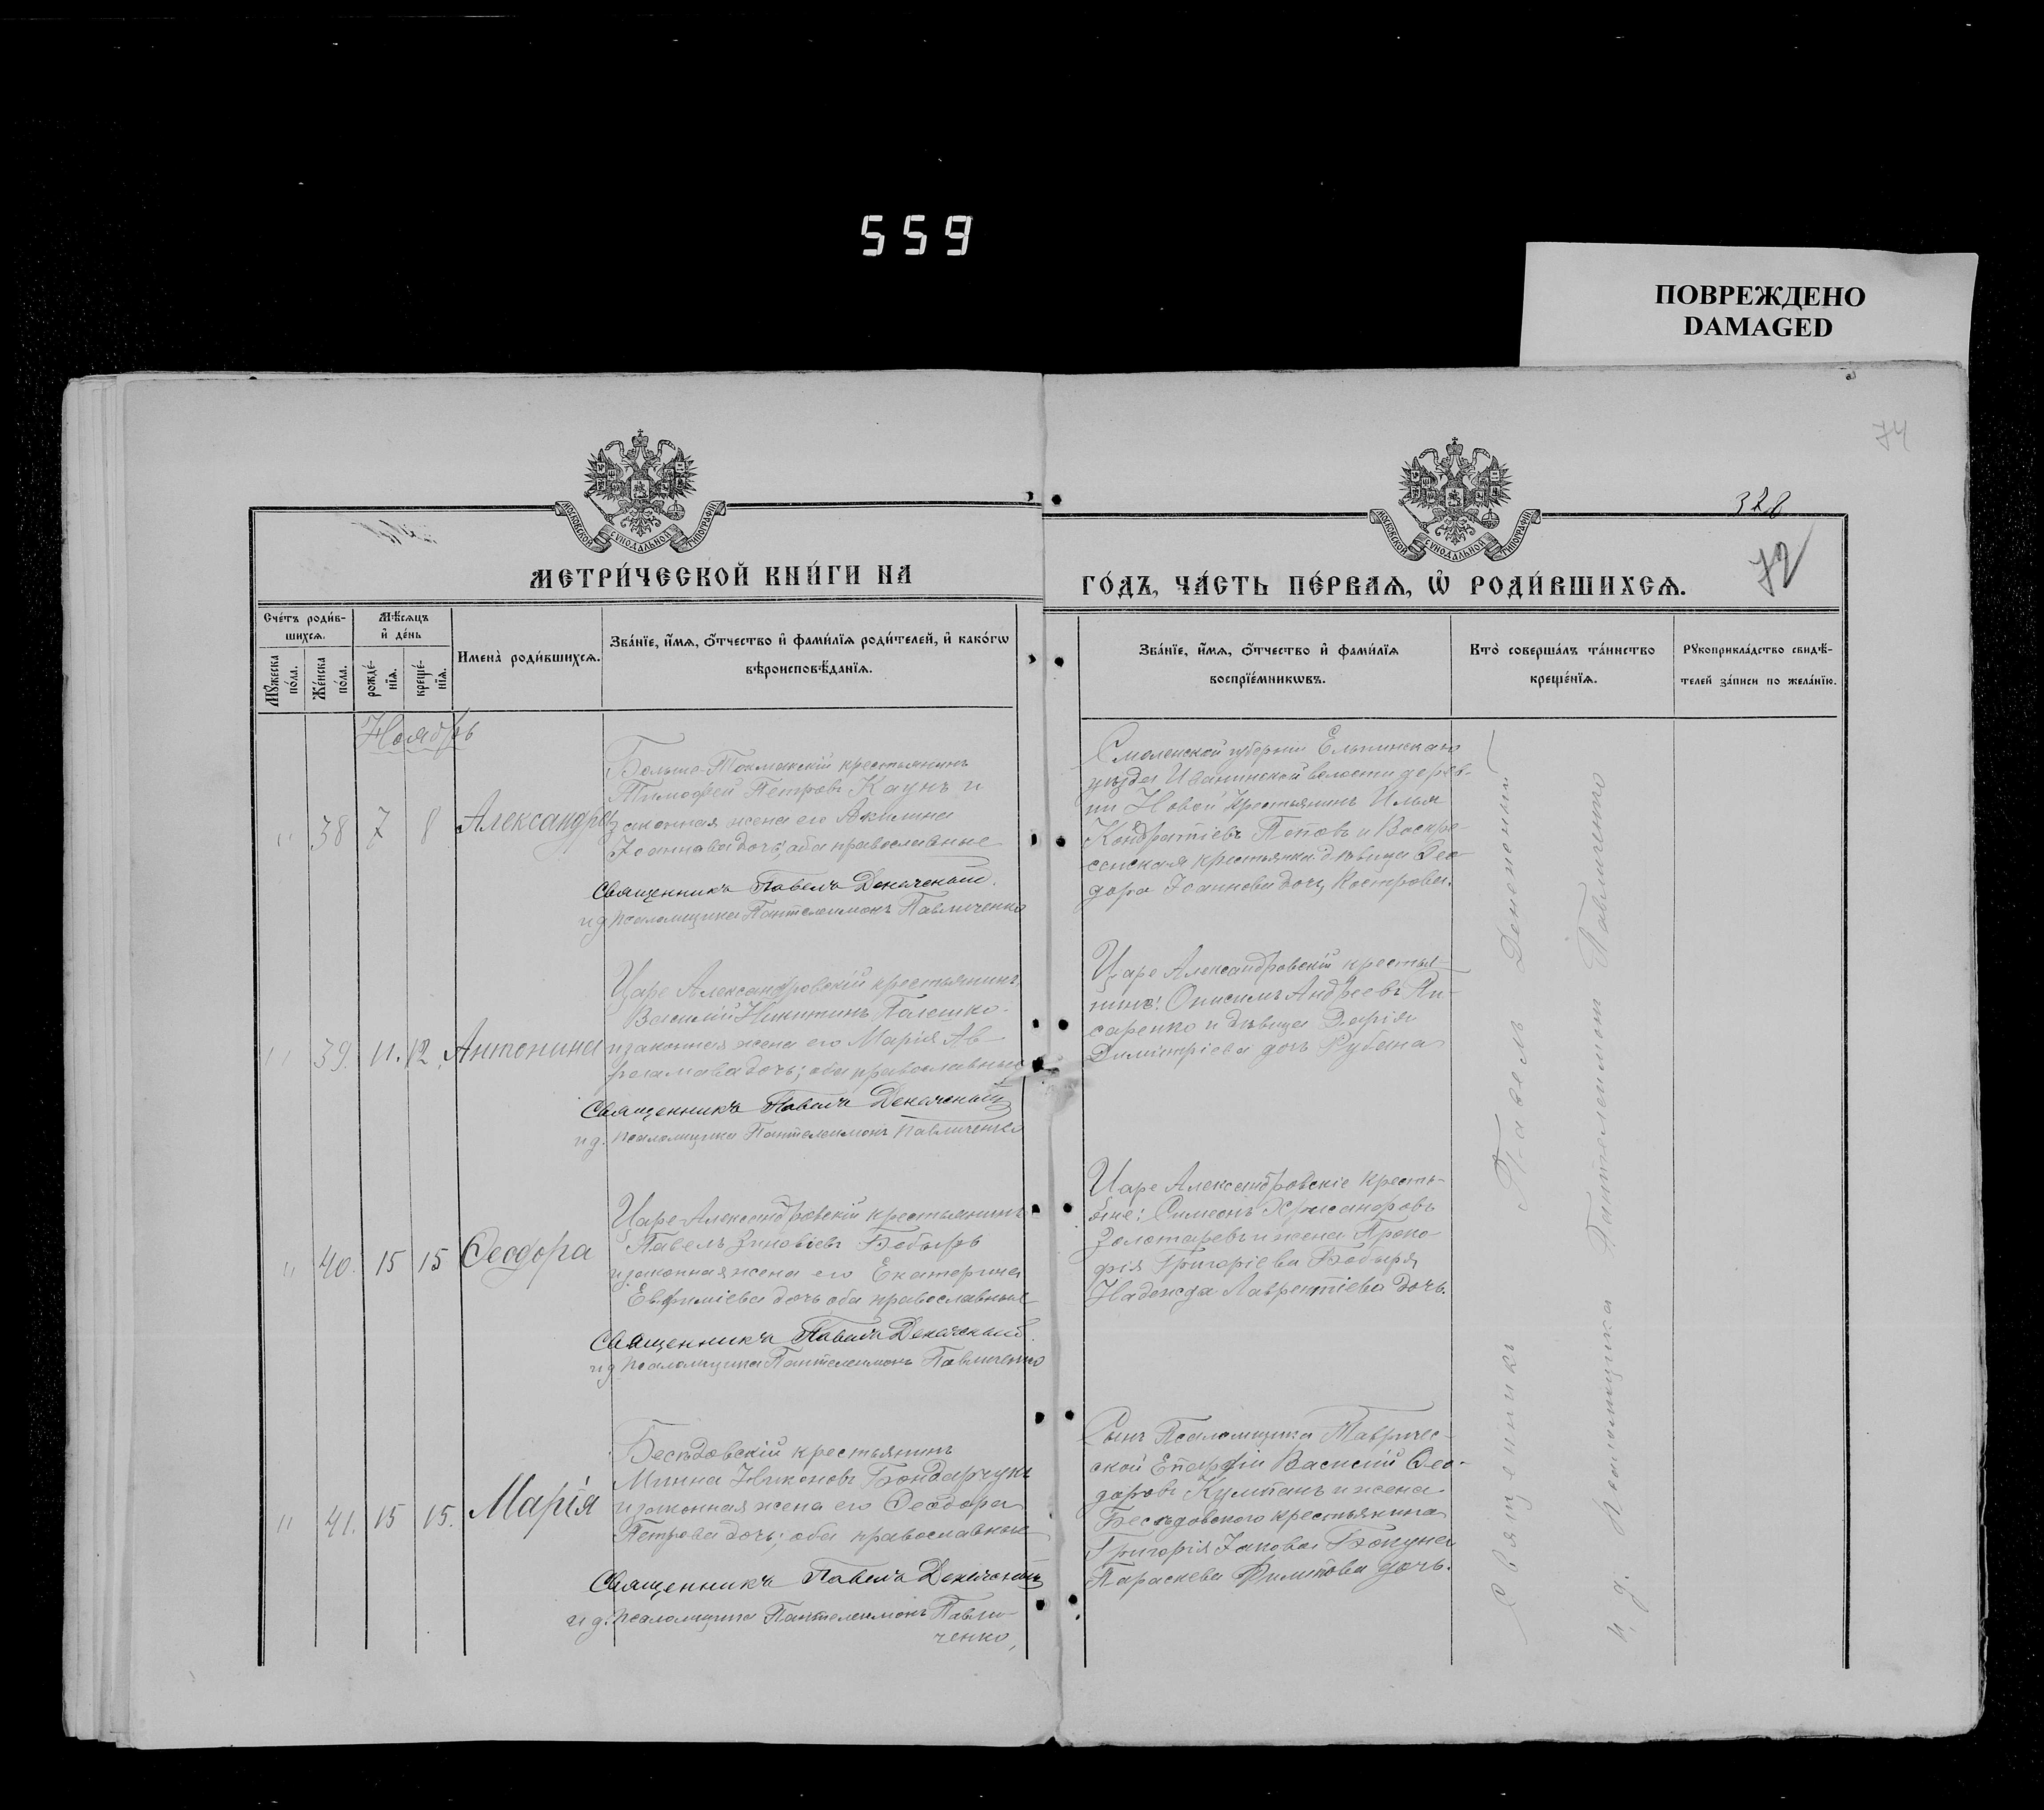 559
ПОВРЕЖДЕНО
DAMAGED
74
328
72
МОСКОВСКОЙ СѴНОДАЛЬНОЙ ТИПОГРАФІИ
МОСКОВСКОЙ СѴНОДАЛЬНОЙ ТИПОГРАФІИ
МЕТРИ́ЧЕСКОЙ КНИ́ГИ НА
ГО́ДЪ, ЧА́СТЬ ПЕ́РВАѦ, Ѡ҆ РОДИ́ВШИХСѦ.
Сче́тъ роди́в-
шихсѧ.
Мꙋ́жеска
по́ла.
Же́нска
по́ла.
Мѣ́сѧцъ
и҆ де́нь
рожде́-
нїѧ.
креще́-
нїѧ.
Имена̀ роди́вшихсѧ.
Зва́нїе, и҆́мѧ, ѻ҆́тчество и҆ фами́лїѧ роди́телей, и҆ како́гѡ
вѣроисповѣ́данїѧ.
Зва́нїе, и҆́мѧ, ѻ҆́тчество и҆ фами́лїѧ
воспрїе́мникѡвъ.
Кто̀ соверша́лъ та́инство
креще́нїѧ.
Рꙋкоприкла́дство свидѣ́-
телей за́писи по жела́нїю.
Ноябрь
" 38 7 8 Александра
Больше-Токмакскій крестьянинъ
Тимофей Петровъ Каунъ и
законная жена его Акилина
Іоаннова дочь; оба православные
Священникъ Павелъ
и д псаломщика Пантелеимонъ Павличенко
Смоленской губерніи Ельнинскаго
уѣзда Иванинской волости дерев-
ни Новой крестьянинъ Илья
Кондратіевъ Поповъ и Воскре-
сенская крестьянка дѣвица Ѳео-
дора Іоаннова дочь Кострова.
" 39. 11. 12. Антонина
Царе Александровскій крестьянинъ
Василій Никитинъ Палешко
и законная жена его Марія Ав-
раамова дочь; оба православные
Священникъ Павелъ
и д. псаломщика Пантелеимонъ Павличенко
Царе Александровскій крестья-
нинъ: Онисимъ Андреевъ Пи-
саренко и дѣвица Дарія
Димитріева дочь Рубана
" 40. 15 15 Ѳеодора
Царе Александровскій крестьянинъ
Павелъ Зиновіевъ Бобырь
и законная жена его Екатерина
Евфиміева дочь оба православные
Священникъ Павелъ
и д псаломщика Пантелеимонъ Павличенко
Царе Александровскіе кресть-
яне: Симеонъ Хрисанфовъ
Золотаревъ и жена Проко-
фія Григоріева Бобыря
Надежда Лаврентіева дочь.
" 41. 15 15. Марія
Бесѣдовскій крестьянинъ
Минна Никоновъ Бондарчукъ
и законная жена его Ѳеодора
Петрова дочь; оба православные
Священникъ Павелъ
и д. псаломщика Пантелеимонъ Павли-
ченко,
Сынъ Псаломщика Тавричес-
кой Епархіи Василій Ѳео-
доровъ и жена
Бесѣдовского крестьянина
Григорія Іакова Бокуна
Параскева Филипова дочь.
Священникъ Павелъ
и. д. псаломщика Пантелеимонъ Павличенко